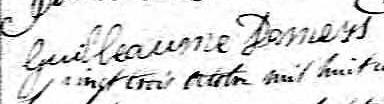 Guilleaume Demers
vingt trois octobre mil huit c